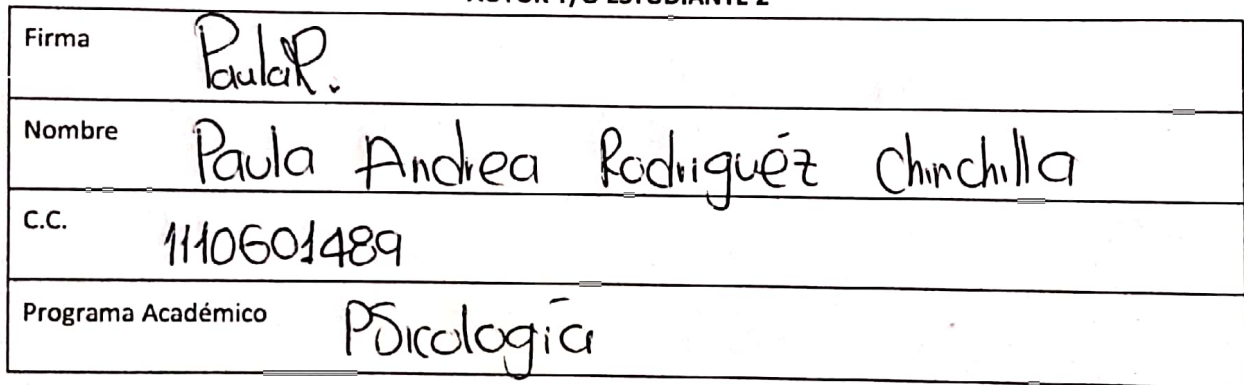 AUTOR Y/O ESTUDIANTE 2
Firma PaulaR.
Nombre Paula Andrea Rodriguéz Chinchilla
C.C. 1110601489
Programa Académico Psicología